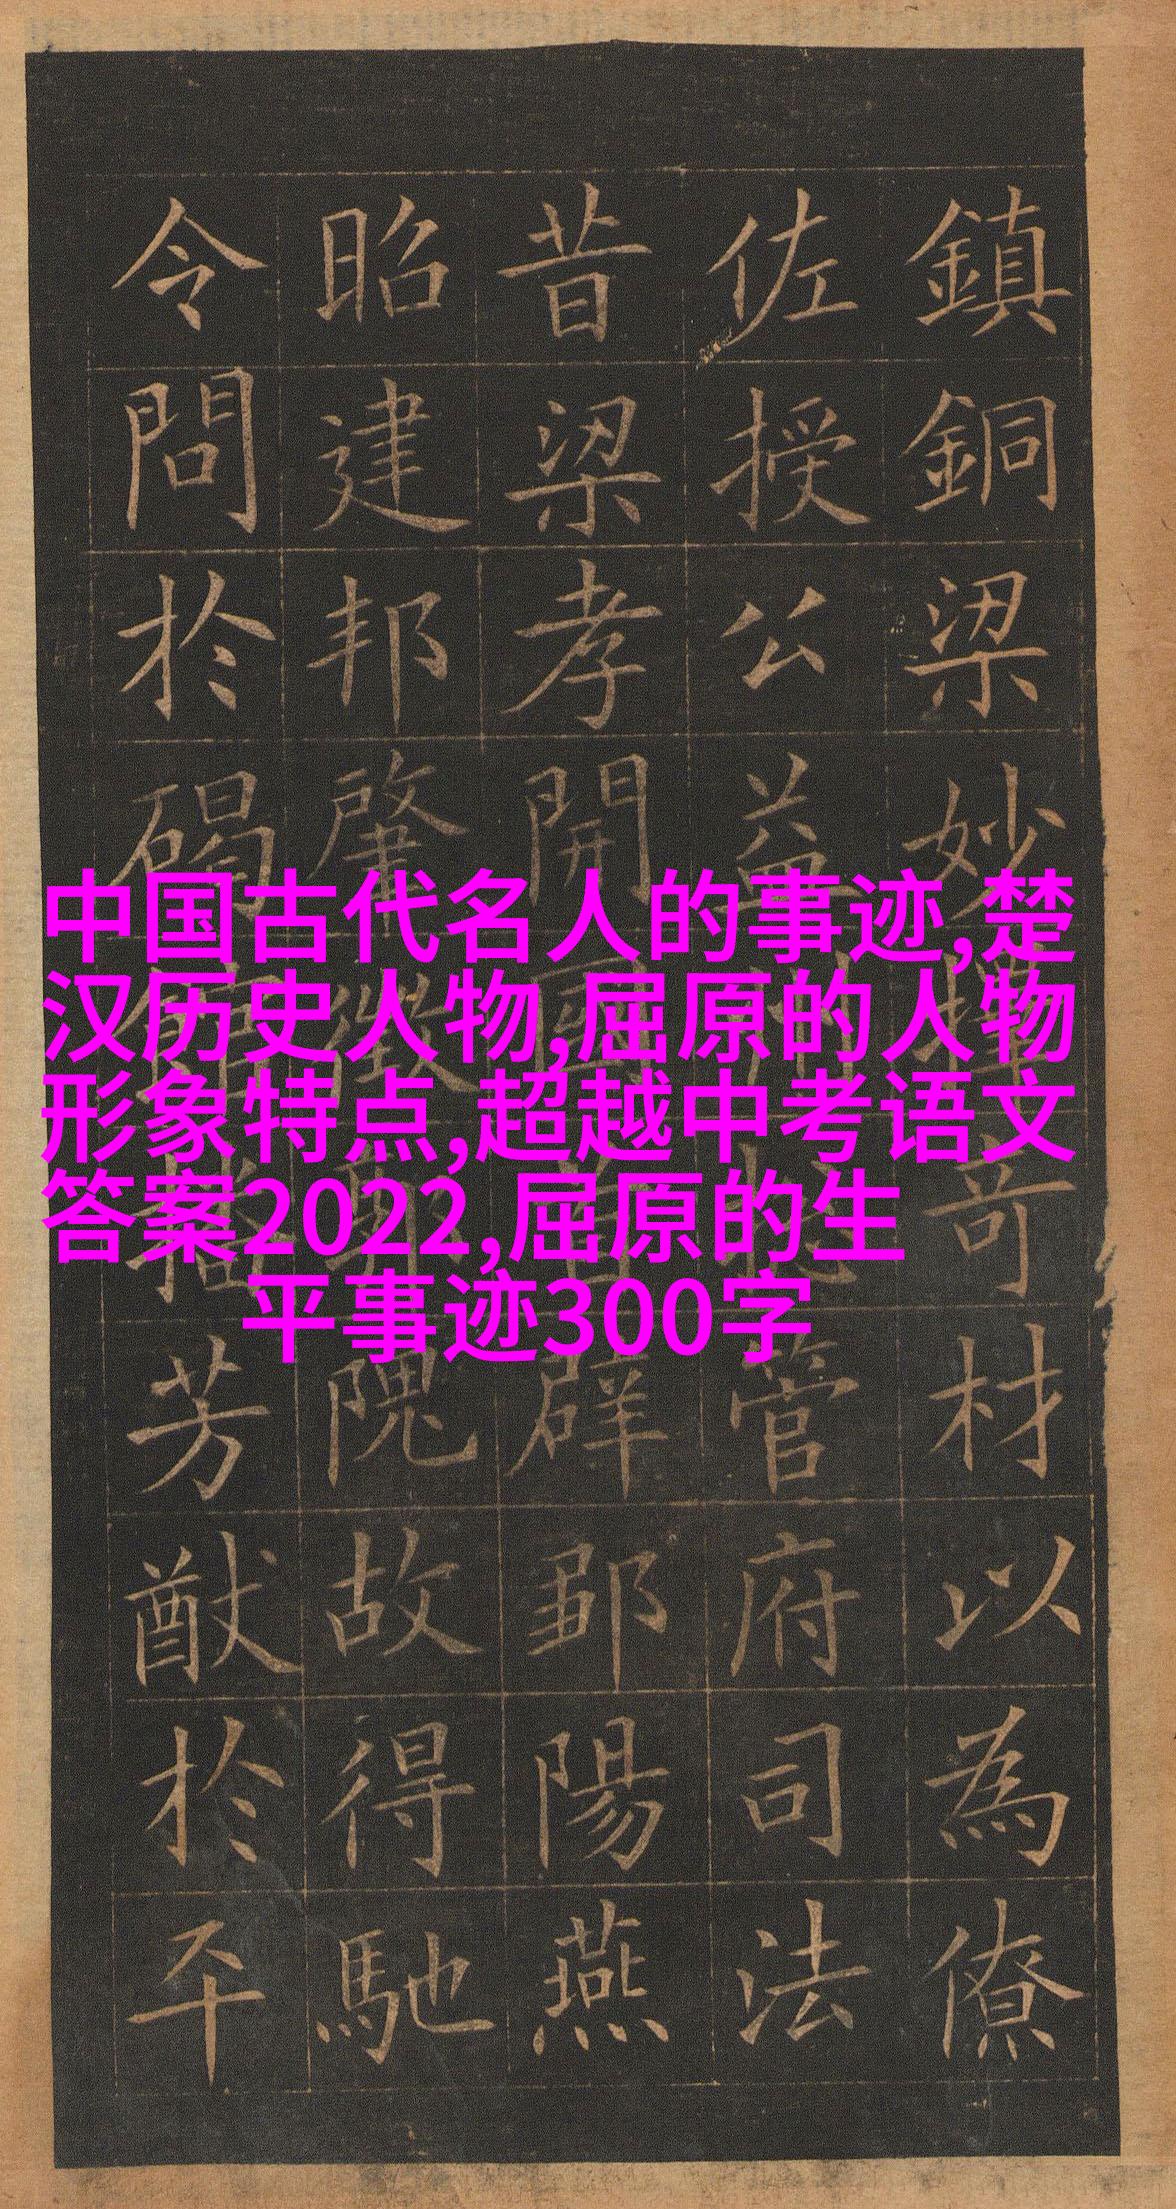 鎮銅梁妙擇奇材以為僚
佐授公益州管府司法
昔梁孝開國首辟鄒陽燕
昭建邦肇徵郭隗故得馳
令問於碣館播芳猷於平
中国古代名人的事迹,楚
汉历史人物,屈原的人物
形象特点,超越中考语文
答案2022,屈原的生
平事迹300字